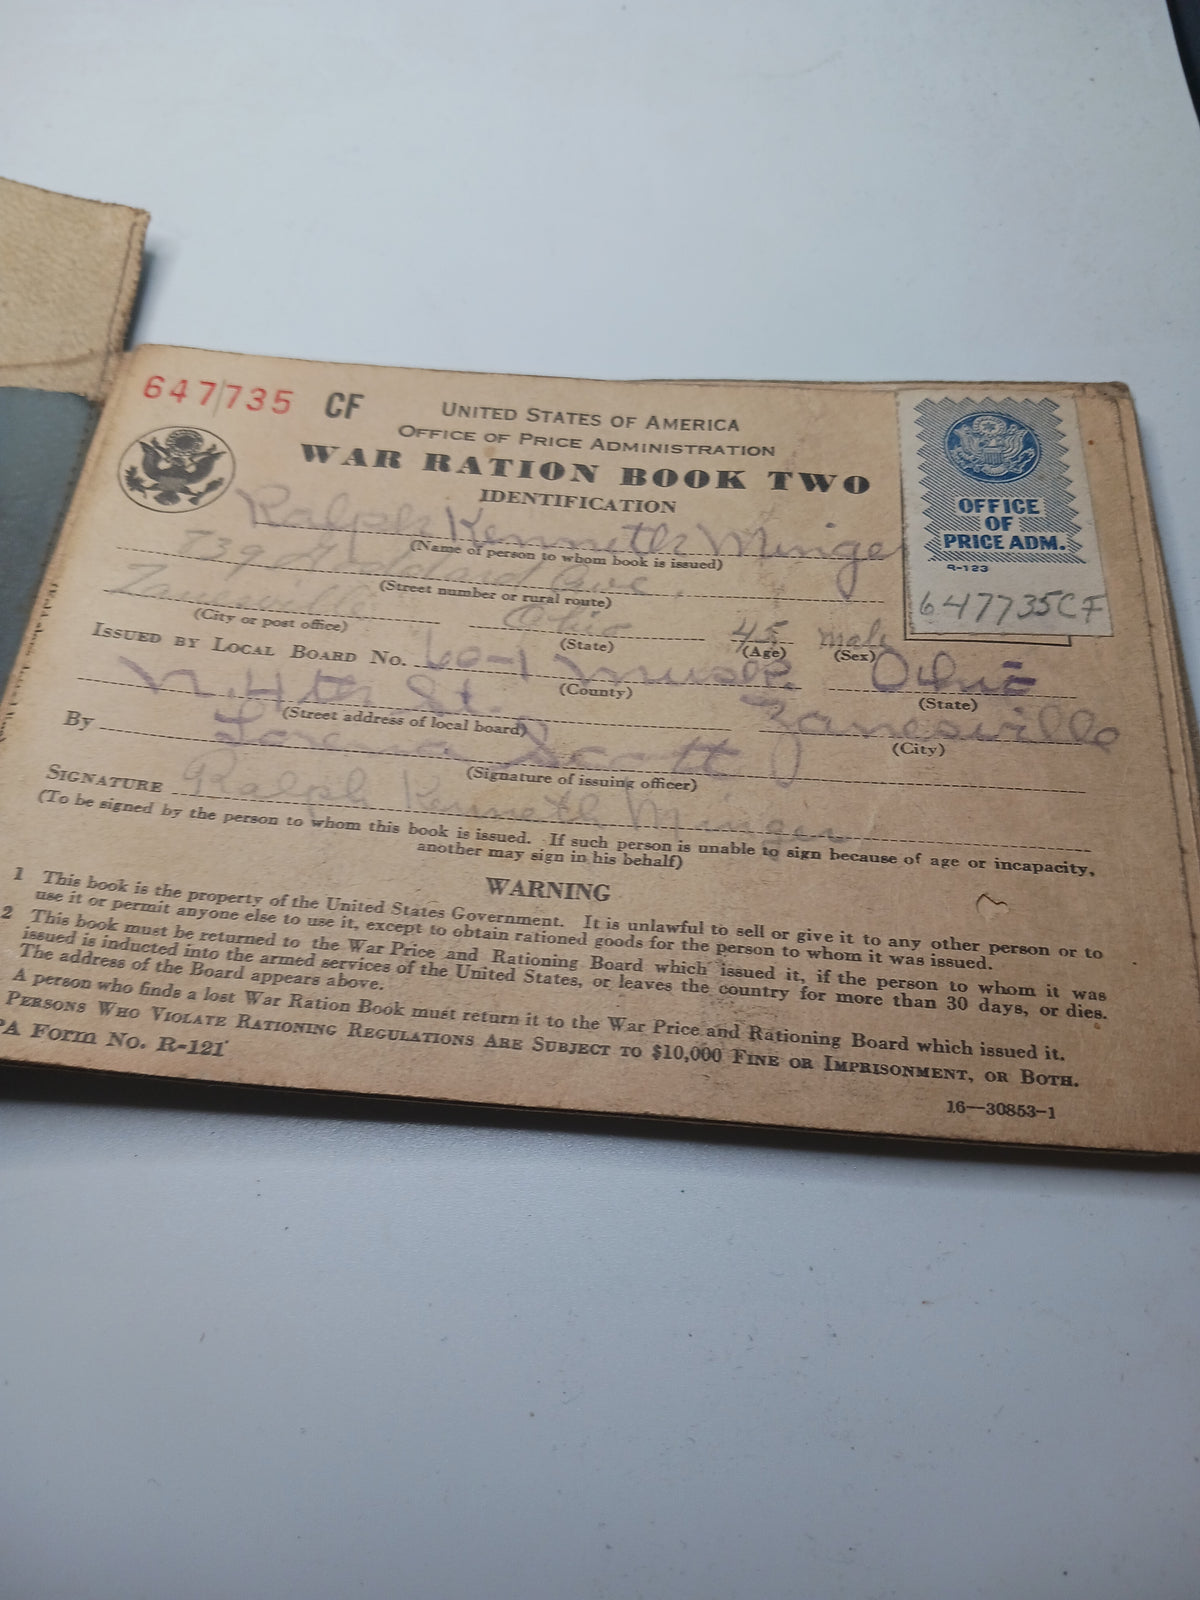 647735 CF
UNITED STATES OF AMERICA
OFFICE OF PRICE ADMINISTRATION
WAR RATION BOOK TWO
IDENTIFICATION
OFFICE
OF
PRICE ADM.
R-123
647735CF
Ralph Kenneth Minger
(Name of person to whom book is issued)
739 Ave.
(Street number or rural route)
Zanesville Ohio 45 male
(City or post office) (State) (Age) (Sex)
ISSUED BY LOCAL BOARD NO. 60-1 Musk. Ohio
(County) (State)
N. 4th St. Zanesville
(Street address of local board) (City)
By Lorena Scott
(Signature of issuing officer)
SIGNATURE Ralph Kenneth Minger
(To be signed by the person to whom this book is issued. If such person is unable to sign because of age or incapacity,
another may sign in his behalf)
WARNING
1 This book is the property of the United States Government. It is unlawful to sell or give it to any other person or to
use it or permit anyone else to use it, except to obtain rationed goods for the person to whom it was issued.
2 This book must be returned to the War Price and Rationing Board which issued it, if the person to whom it was
issued is inducted into the armed services of the United States, or leaves the country for more than 30 days, or dies.
The address of the Board appears above.
A person who finds a lost War Ration Book must return it to the War Price and Rationing Board which issued it.
PERSONS WHO VIOLATE RATIONING REGULATIONS ARE SUBJECT TO $10,000 FINE OR IMPRISONMENT, OR BOTH.
PA Form No. R-121
16—30853-1